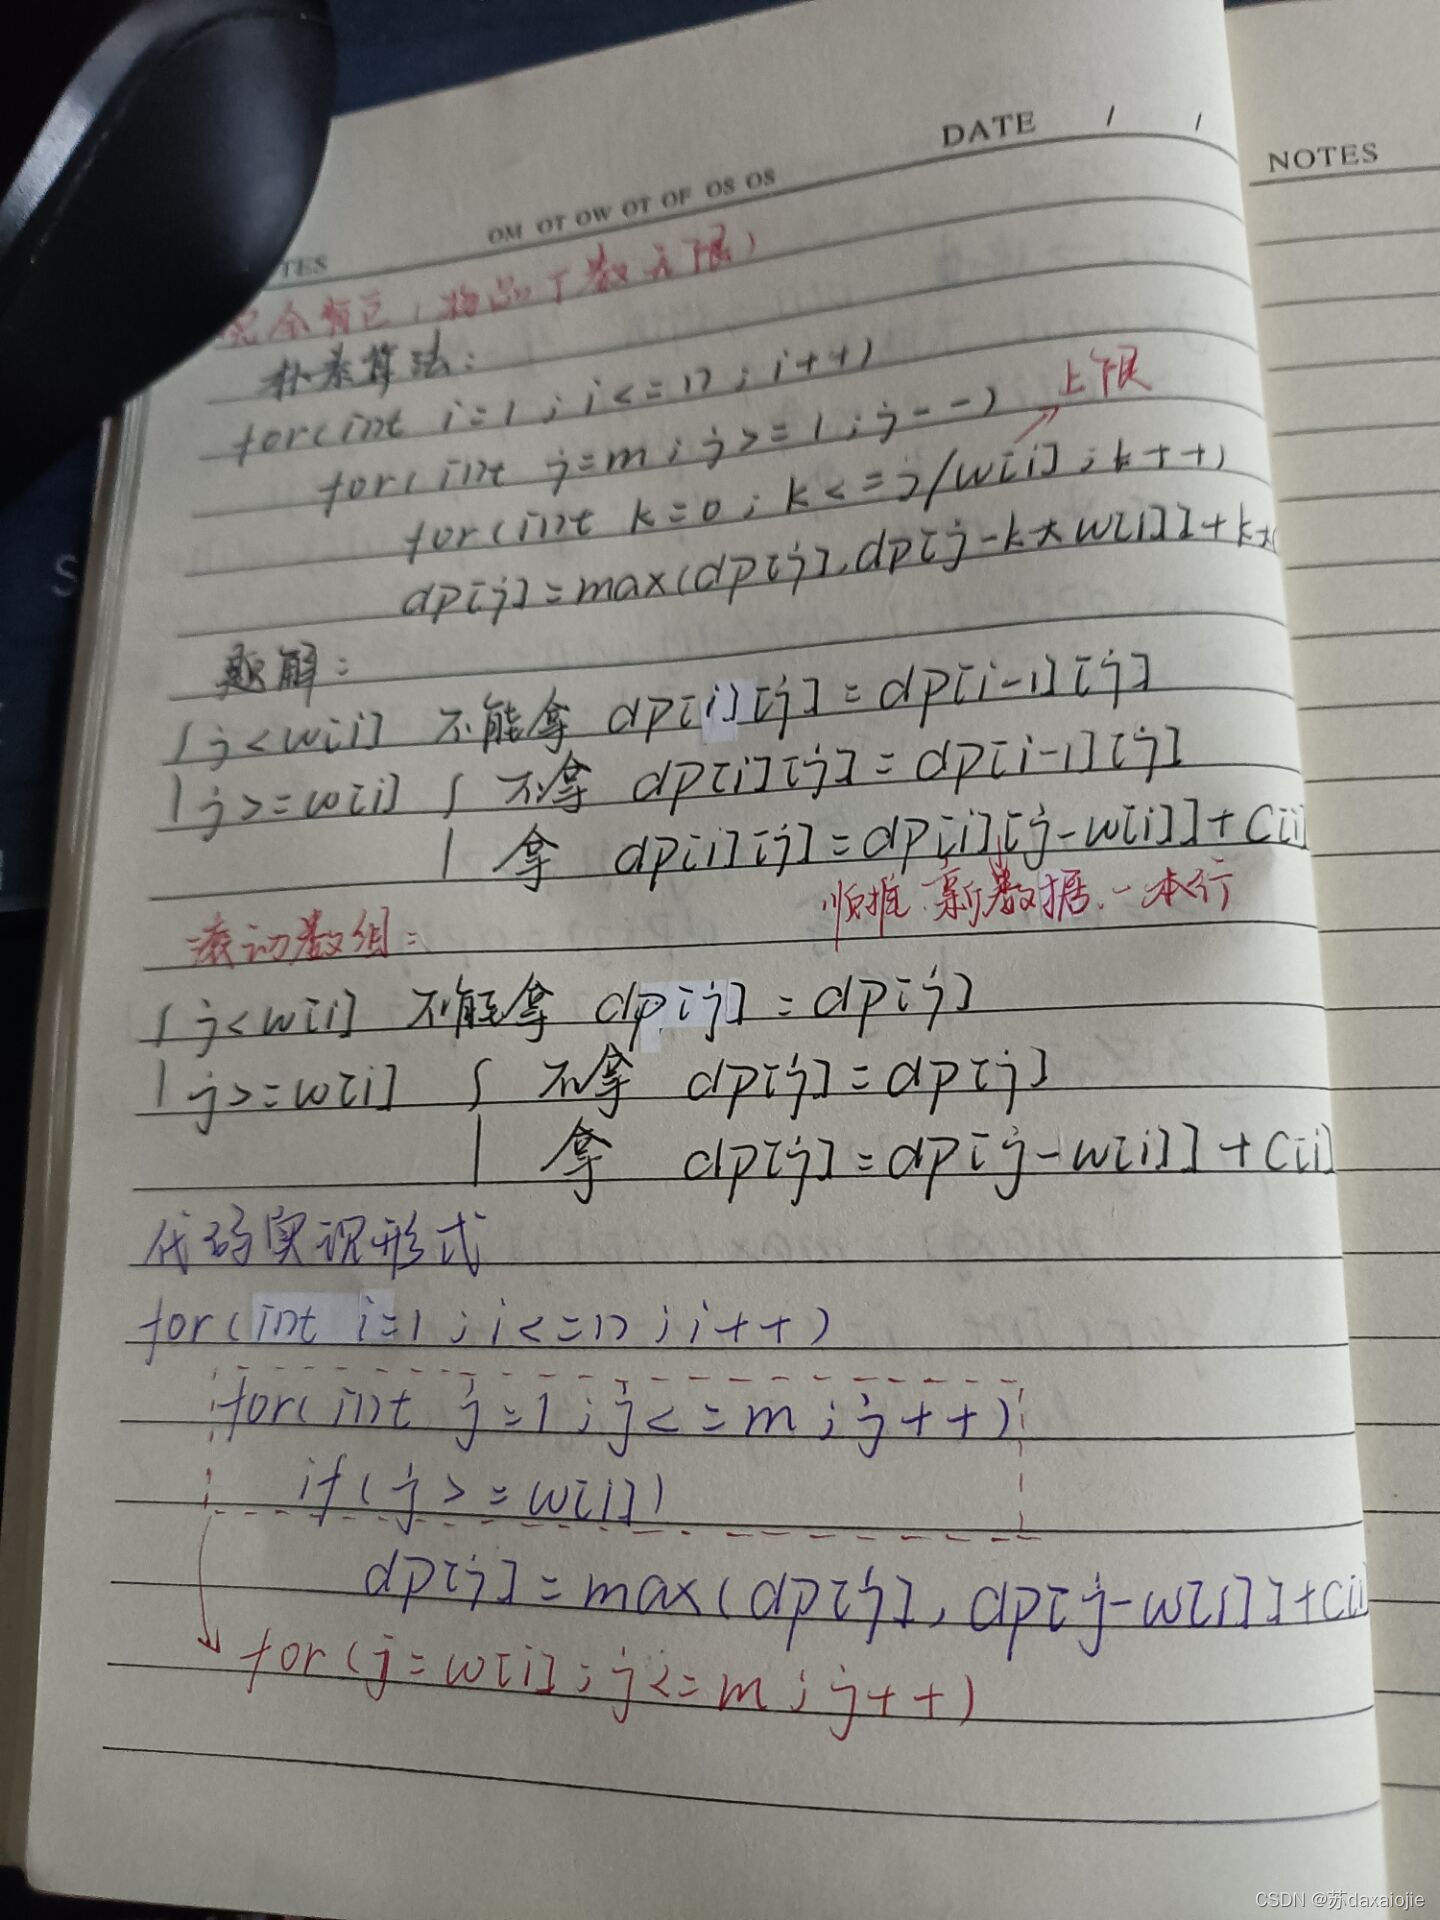 DATE / /
NOTES
TES OM OT OW OT OF OS OS
完全背包(物品个数无限)
朴素算法:
for(int i=1;i<=n;i++)
上限
for(int j=m;j>=1;j--)
for(int k=0;k<=j/w[i];k++)
dp[j]=max(dp[j],dp[j-k*w[i]]+k*
题解:
{ j<w[i] 不能拿 dp[i][j]=dp[i-1][j]
j>=w[i] { 不拿 dp[i][j]=dp[i-1][j]
拿 dp[i][j]=dp[i][j-w[i]]+c[i]
顺推 新数据、一本行
滚动数组:
{ j<w[i] 不能拿 dp[j]=dp[j]
j>=w[i] { 不拿 dp[j]=dp[j]
拿 dp[j]=dp[j-w[i]]+c[i]
代码实现形式
for(int i=1;i<=n;i++)
for(int j=1;j<=m;j++)
if(j>=w[i])
dp[j]=max(dp[j],dp[j-w[i]]+c[i]
for(j=w[i];j<=m;j++)
CSDN @苏daxaiojie